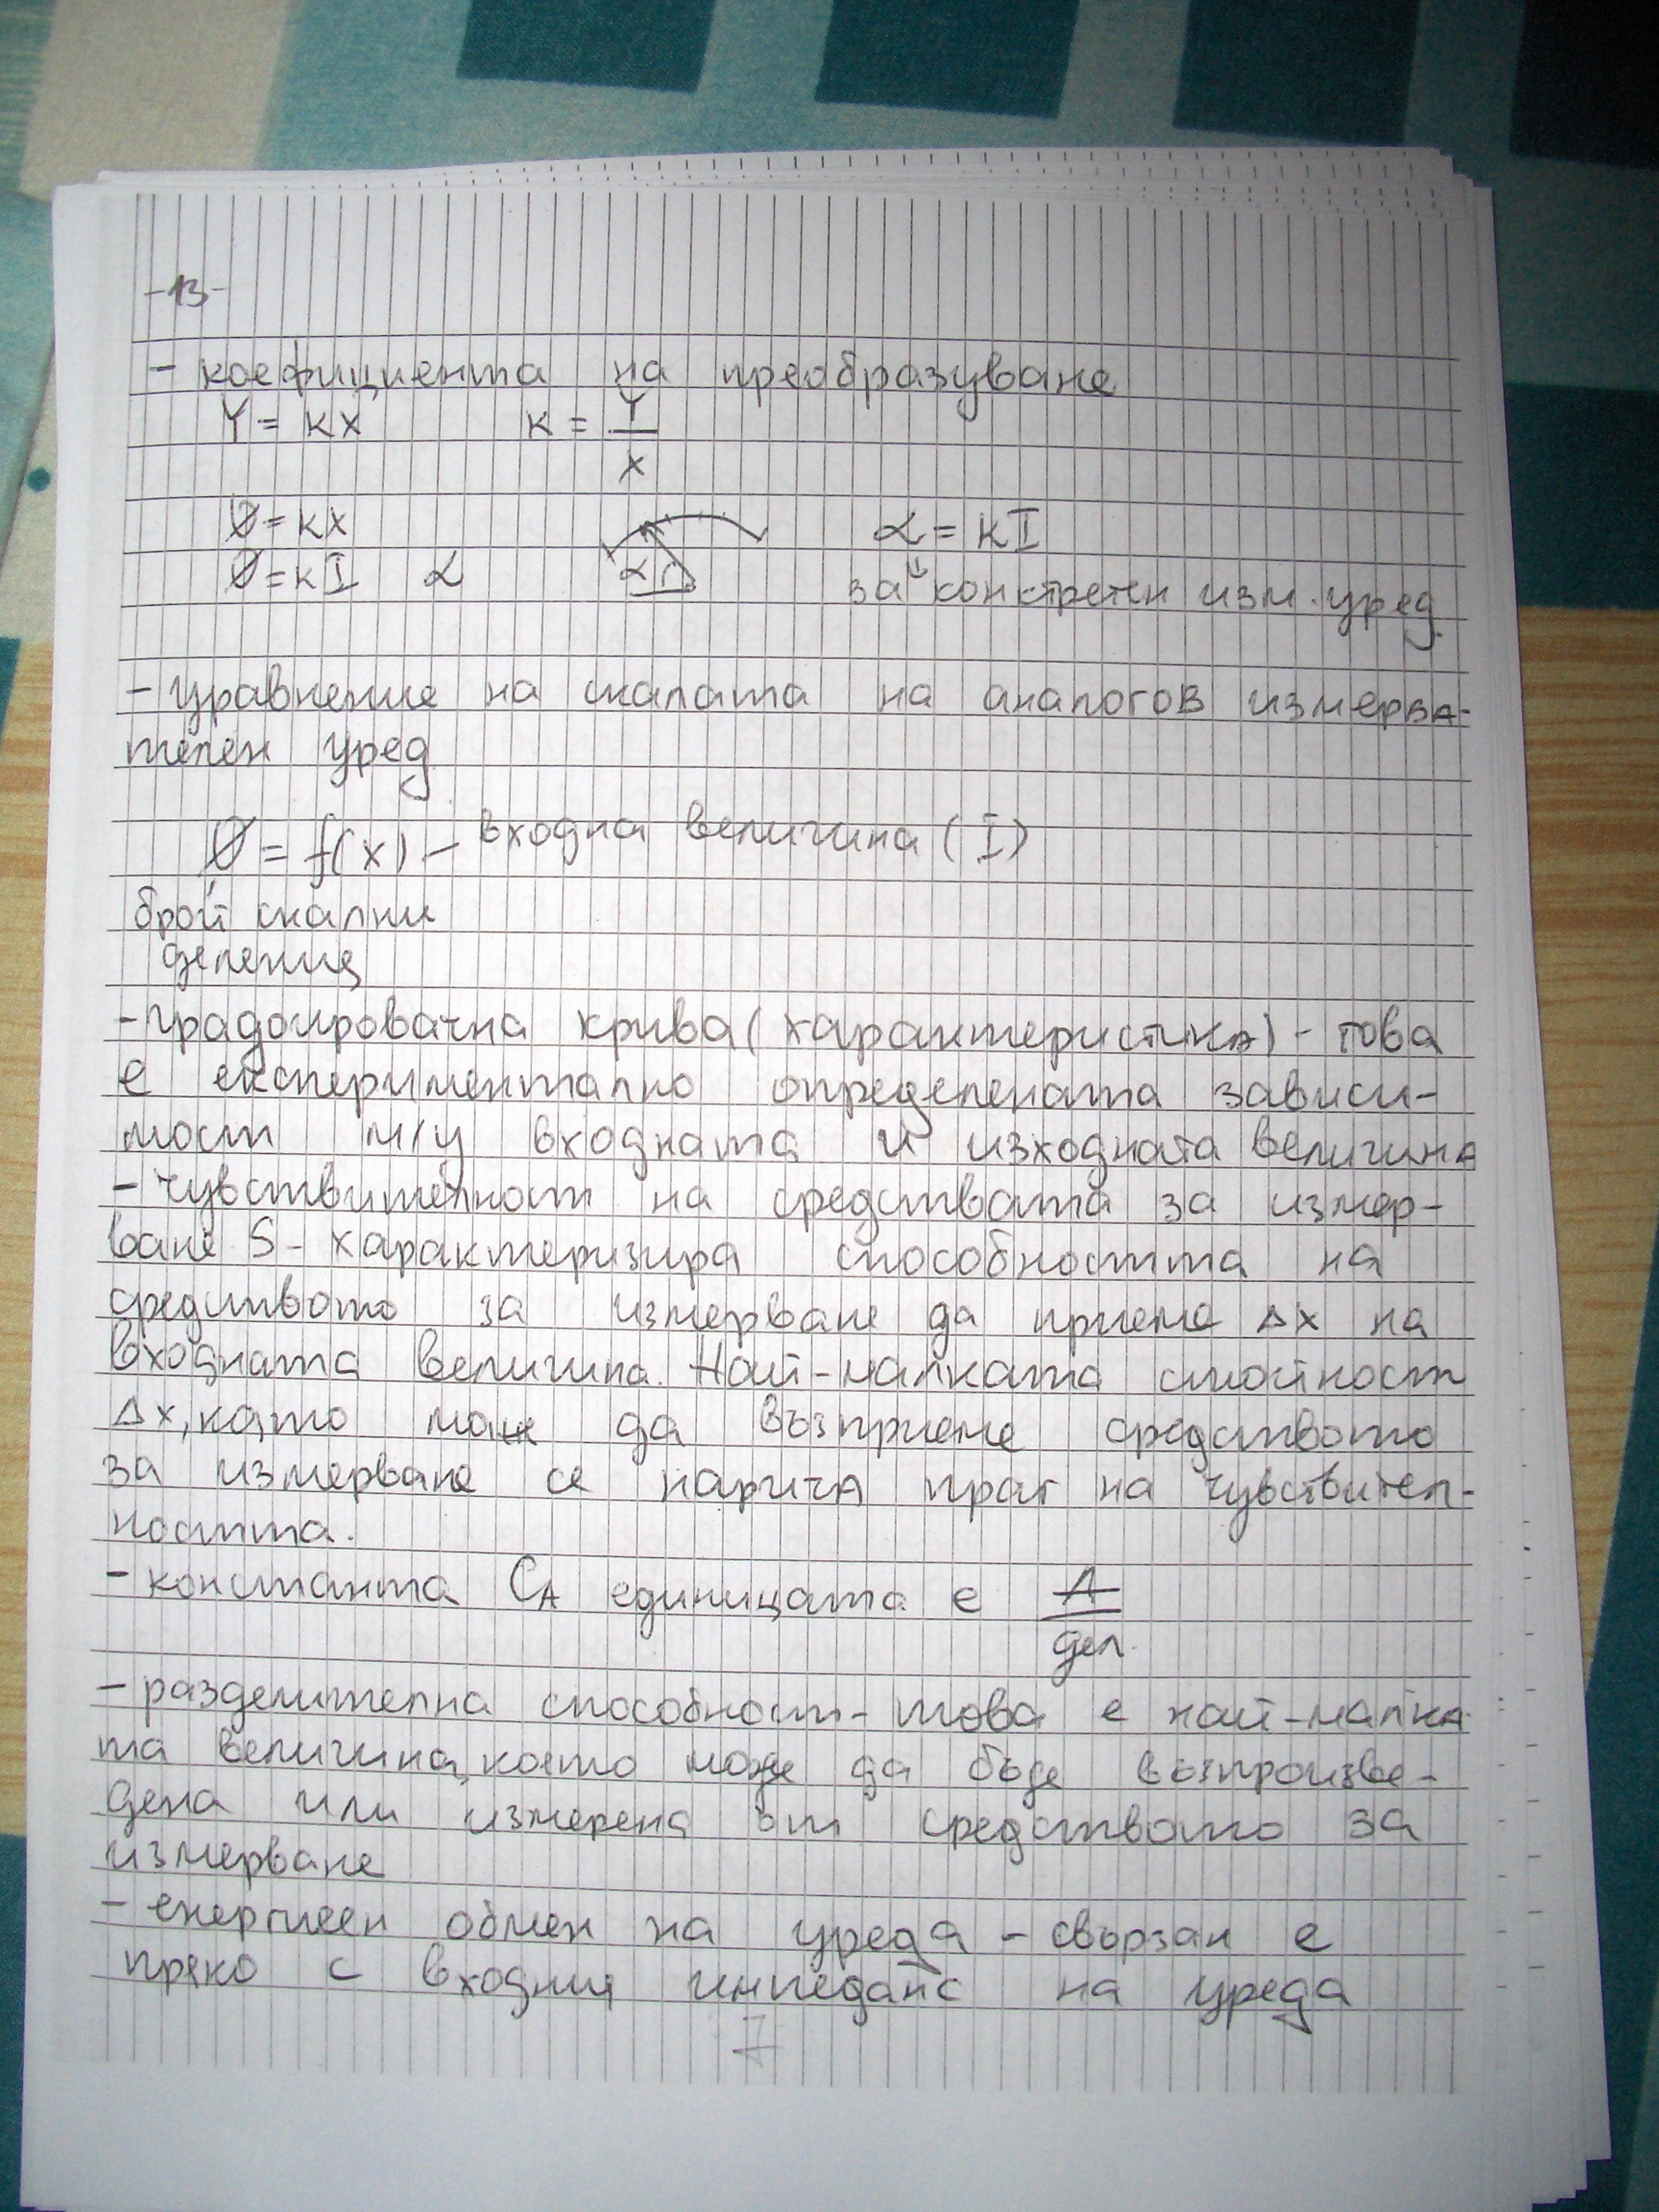 -13-
- коефициента на преобразуване
Y = кX к = Y/X
ϑ = кX α = кI
ϑ = кI α α за конкретен изм. уред
- уравнение на скалата на аналогов измерва-
телен уред
ϑ = f(x) - входна величина (I)
брой скални
деления
- градоировачна крива (характеристика) - това
е експериментално определената зависи-
мост м/у входната и изходната величина
- чувствителност на средствата за измер-
ване S - характеризира способността на
средството за измерване да приеме Δx на
входната величина. Най-малката стойност
Δx, която може да възприеме средството
за измерване се нарича праг на чувствител-
ността.
- константа CA единицата е A/дел.
- разделителна способност - това е най-малка-
та величина, която може да бъде възпроизве-
дена или измерена от средството за
измерване
- енергиеен обмен на уреда - свързан е
пряко с входния импеданс на уреда
7